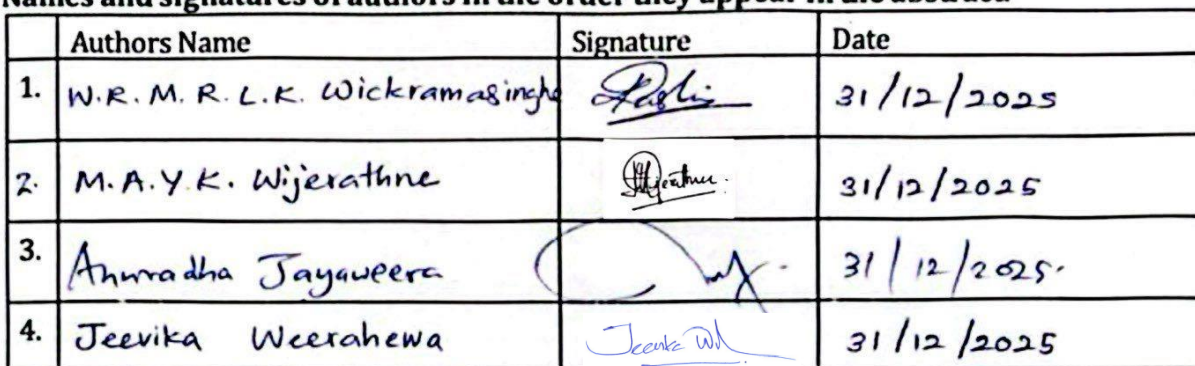 Names and signatures of authors in the order they appear in the abstract
Authors Name Signature Date
1. W.R.M.R.L.K. Wickramasinghe 31/12/2025
2. M.A.Y.K. Wijerathne Wijerathne. 31/12/2025
3. Anuradha Jayaweera 31/12/2025.
4. Jeevika Weerahewa 31/12/2025